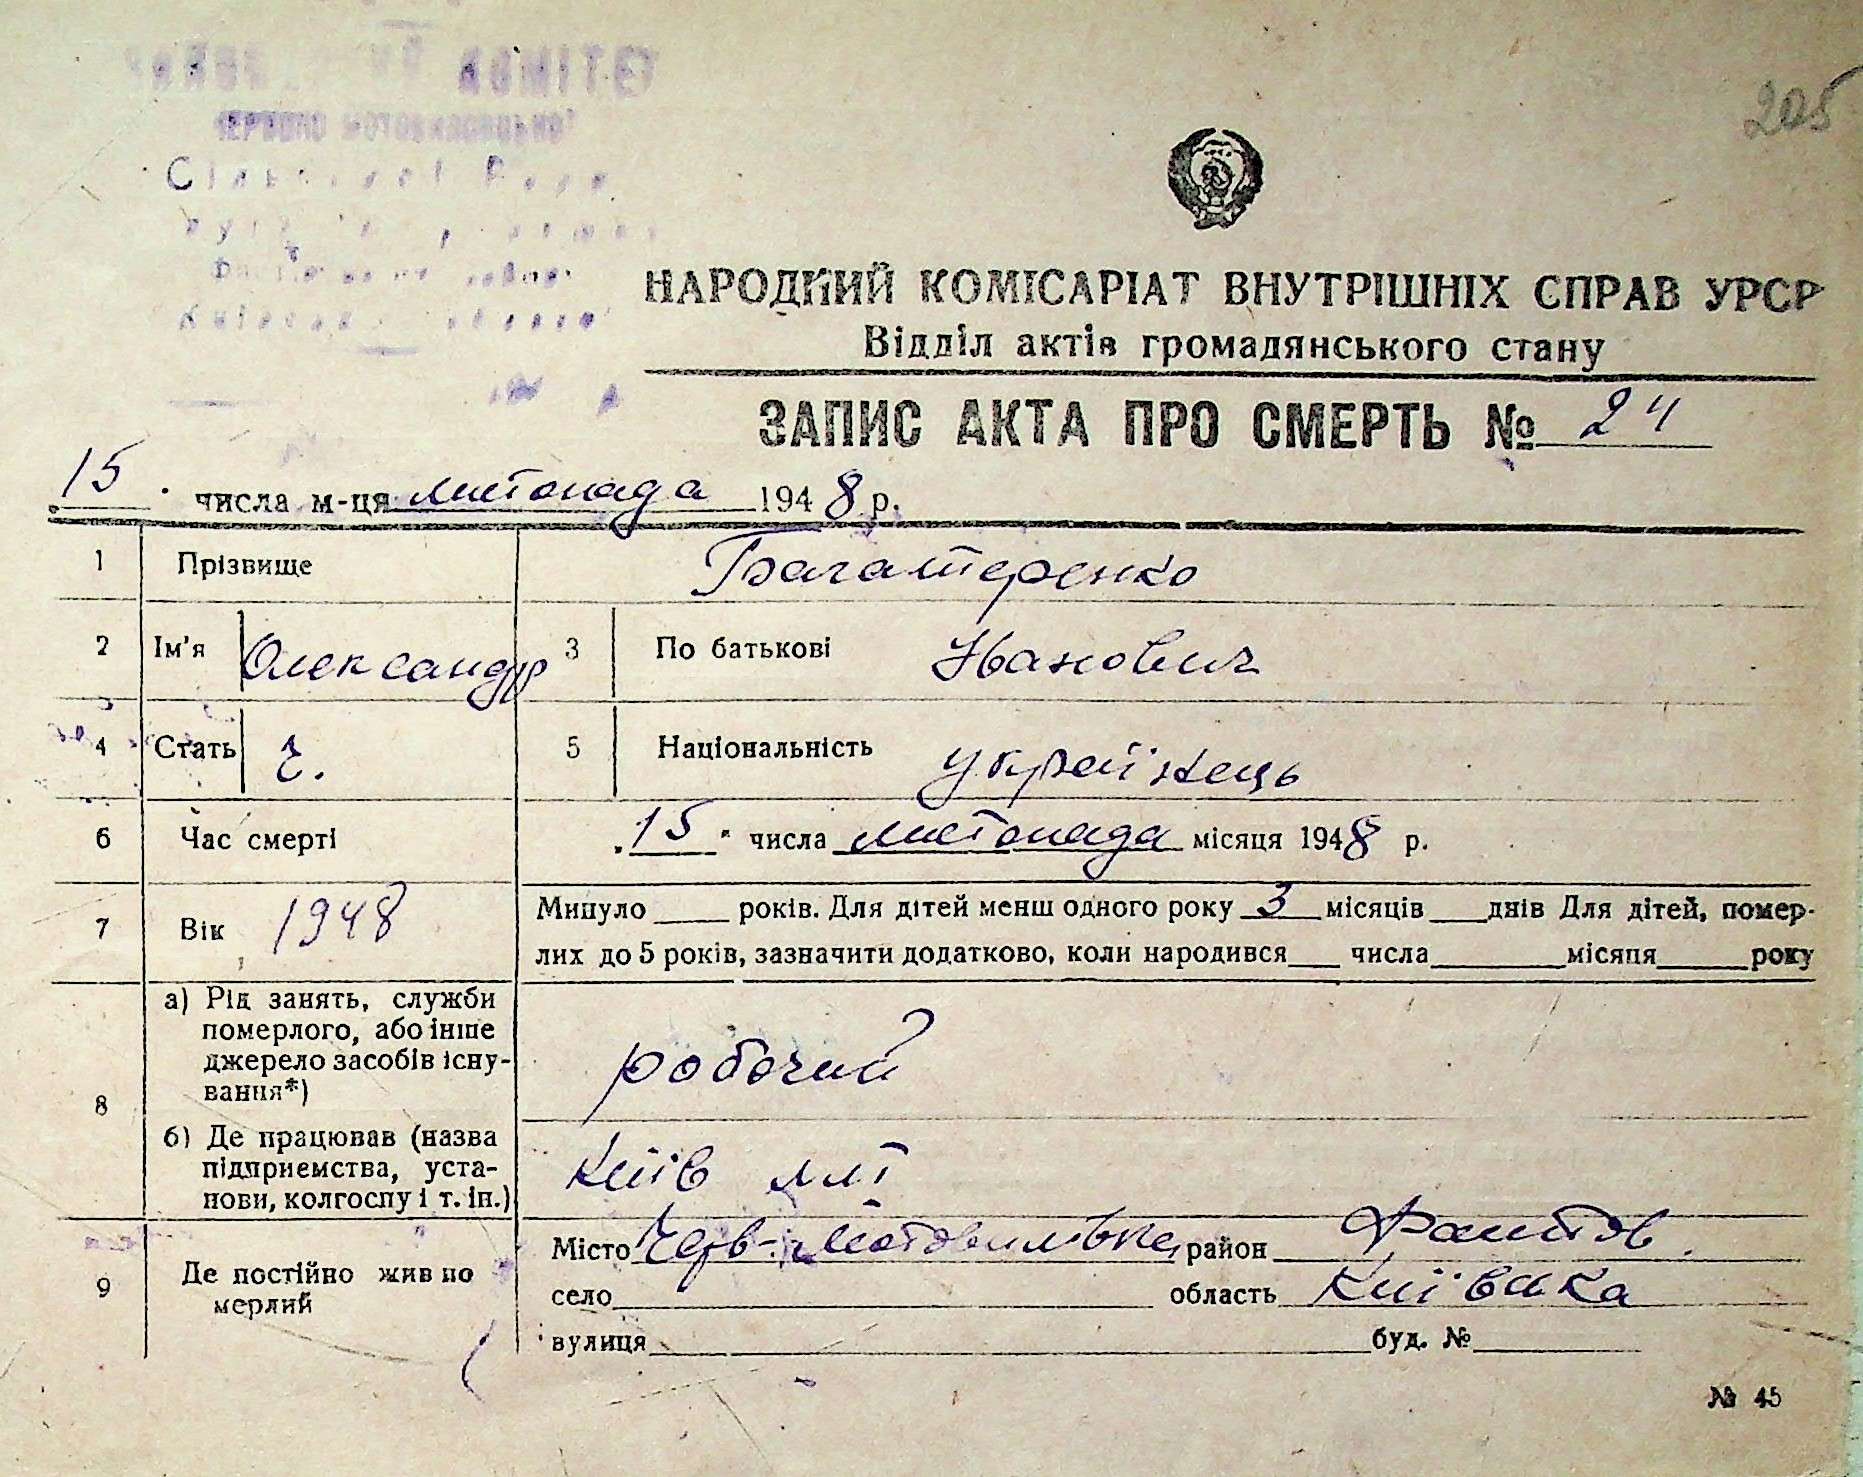 205
НАРОДНИЙ КОМІСАРІАТ ВНУТРІШНІХ СПРАВ УРСР
Відділ актів громадянського стану
ЗАПИС АКТА ПРО СМЕРТЬ № 24
15 числа м-ця листопада 1948 р.
1 Прізвище Багатеренко
2 Ім'я Олександр 3 По батькові Іванович
4 Стать ч. 5 Національність українець
6 Час смерті 15 числа листопада місяця 1948 р.
7 Вік 1948 Минуло років. Для дітей менш одного року 3 місяців днів Для дітей, помер-
лих до 5 років, зазначити додатково, коли народився числа місяця року
8 а) Рід занять, служби
померлого, або інше
джерело засобів існу-
вання*) робочий
б) Де працював (назва
підприємства, уста-
нови, колгоспу і т. ін.) Київ
9 Де постійно жив по
мерлий
Місто Черв-Мотовилівка район Фастов.
село область Київська
вулиця буд. №
№ 45